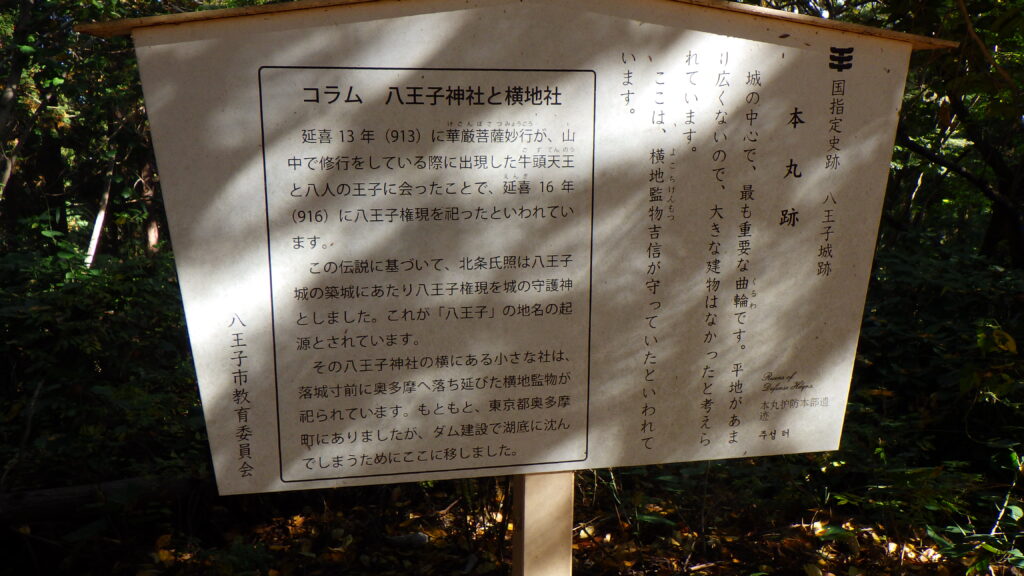 国指定史跡　八王子城跡
本丸跡
城の中心で、最も重要な曲輪です。平地があま
り広くないので、大きな建物はなかったと考えら
れています。
ここは、横地監物吉信が守っていたといわれて
います。
Ruins of
Defense Hdqrs.
本丸护防本部遗
迹
주성 터
コラム　八王子神社と横地社
延喜 13 年（913）に華厳菩薩妙行が、山
中で修行をしている際に出現した牛頭天王
と八人の王子に会ったことで、延喜 16 年
（916）に八王子権現を祀ったといわれてい
ます。
この伝説に基づいて、北条氏照は八王子
城の築城にあたり八王子権現を城の守護神
としました。これが「八王子」の地名の起
源とされています。
その八王子神社の横にある小さな社は、
落城寸前に奥多摩へ落ち延びた横地監物が
祀られています。もともと、東京都奥多摩
町にありましたが、ダム建設で湖底に沈ん
でしまうためにここに移しました。
八王子市教育委員会